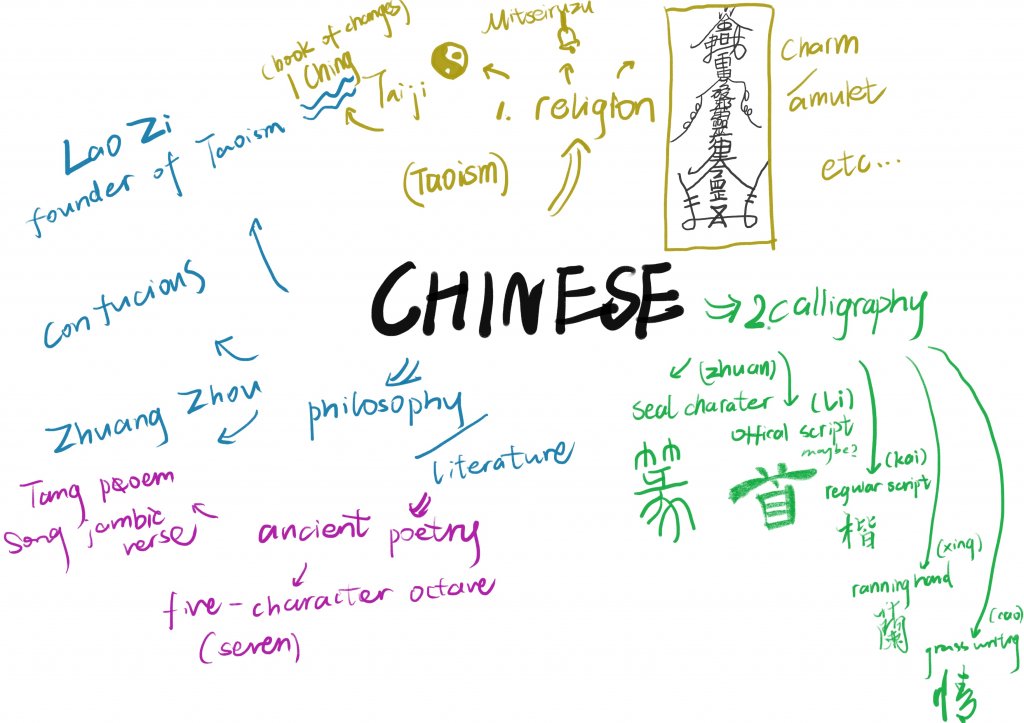 (book of changes)
I Ching
Taiji
Mitseiruzu
1. religion
(Taoism)
charm
/amulet
etc...
Lao Zi
founder of Taoism
Confucious
Zhuang Zhou
CHINESE
philosophy
/literature
ancient poetry
Tang poem
Song jambic
verse
five-character octave
(seven)
2.calligraphy
(zhuan)
seal charater
篆
(Li)
offical script
maybe?
首
(kai)
regular script
楷
(xing)
ranning hand
蘭
(cao)
grass writing
情